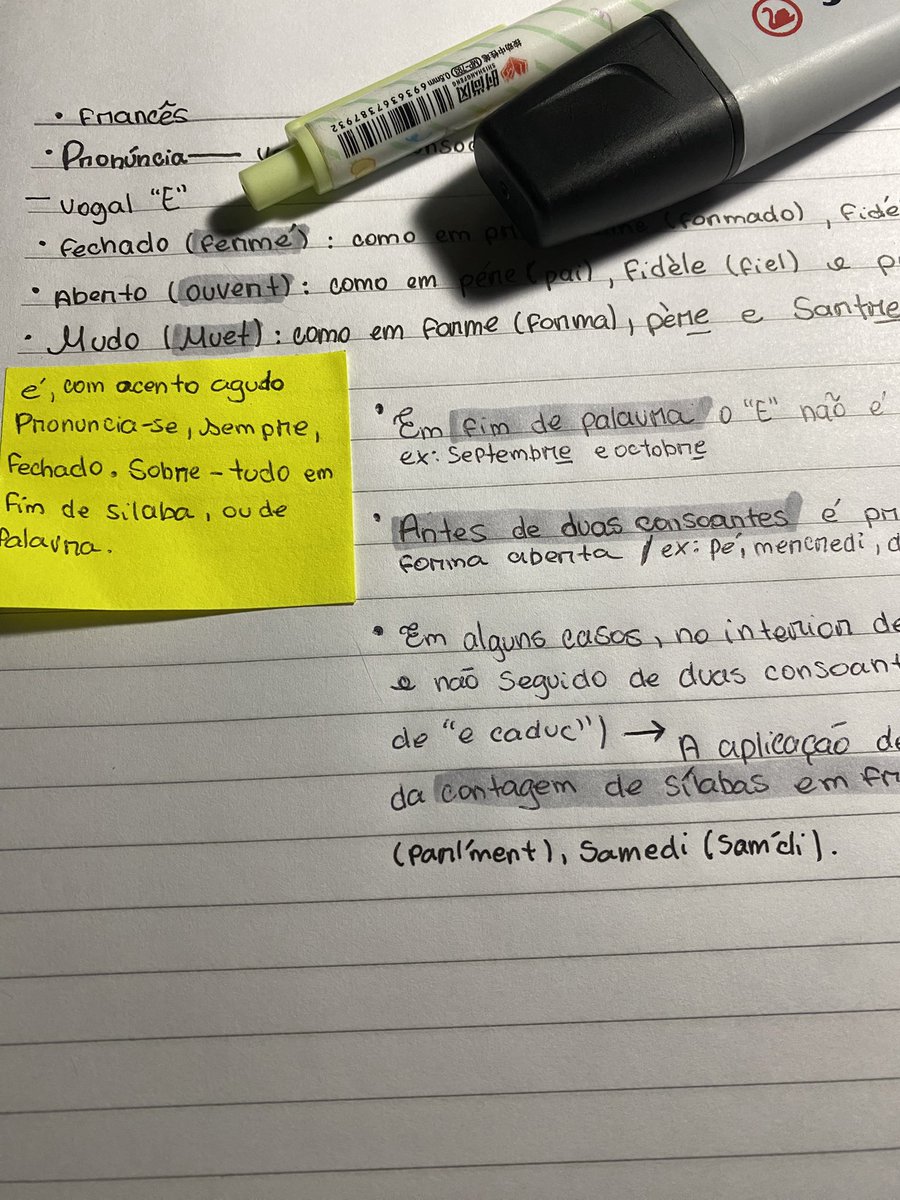 • Francês
• Pronúncia —
— Vogal "E"
• Fechado (fermé) : como em (formado), Fidé
• Aberto (ouvert) : como em père (pai), Fidèle (fiel) e p
• Mudo (Muet) : como em forme (forma), père e Santre
é, com acento agudo
Pronuncia-se, sempre,
Fechado. Sobre-tudo em
Fim de silaba, ou de
Palavra.
• Em fim de palavra o "E" não é
ex: Septembre e octobre
• Antes de duas consoantes é pr
forma aberta / ex: pé, mercredi, d
• Em alguns casos, no interior de
e não seguido de duas consoant
de "e caduc") → A aplicação de
da contagem de sílabas em fr
(parl'ment), Samedi (Sam'di).
时尚风
SHISHANGFENG
按动中性笔
0.5mm
6936367387932